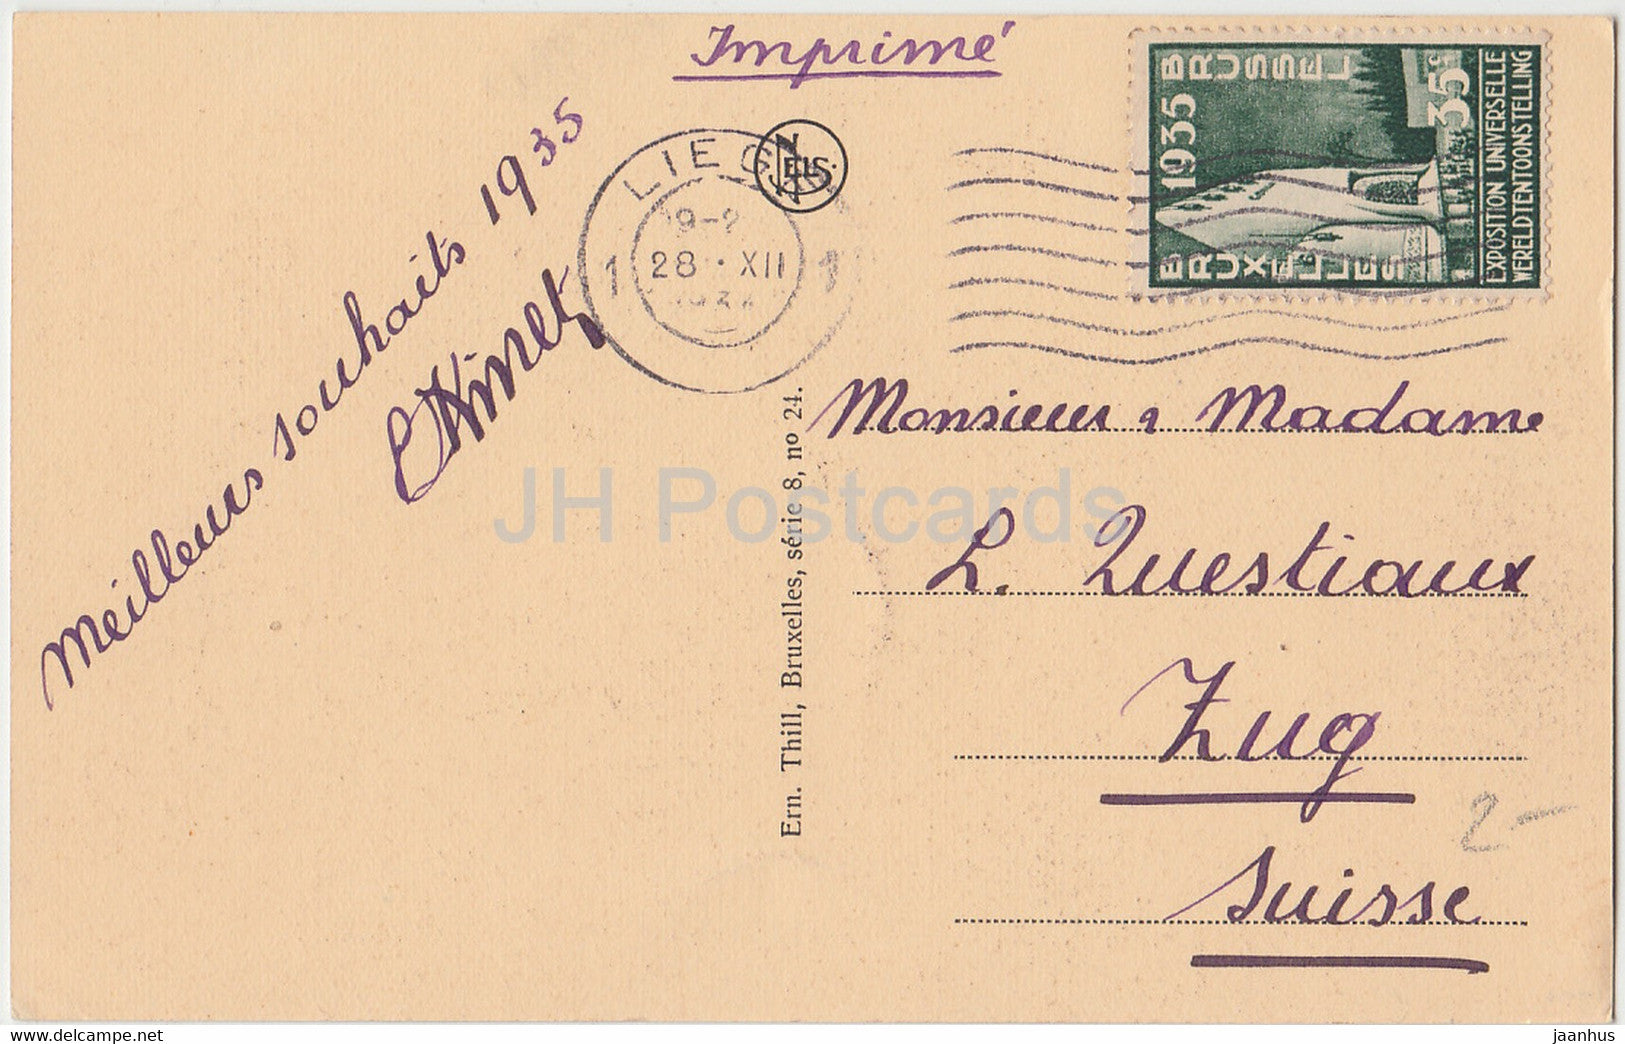 Imprimé
Meilleurs souhaits 1935
LIEGE
1 28 · XII 1
NELS
BRUSSEL
1935
BRUXELLES
35c
EXPOSITION UNIVERSELLE
WERELDTENTOONSTELLING
Ern. Thill, Bruxelles, série 8, nº 24.
Monsieur & Madame
L. Questiaux
Zug
Suisse
2 -
JH Postcards
www.delcampe.net
jaanhus